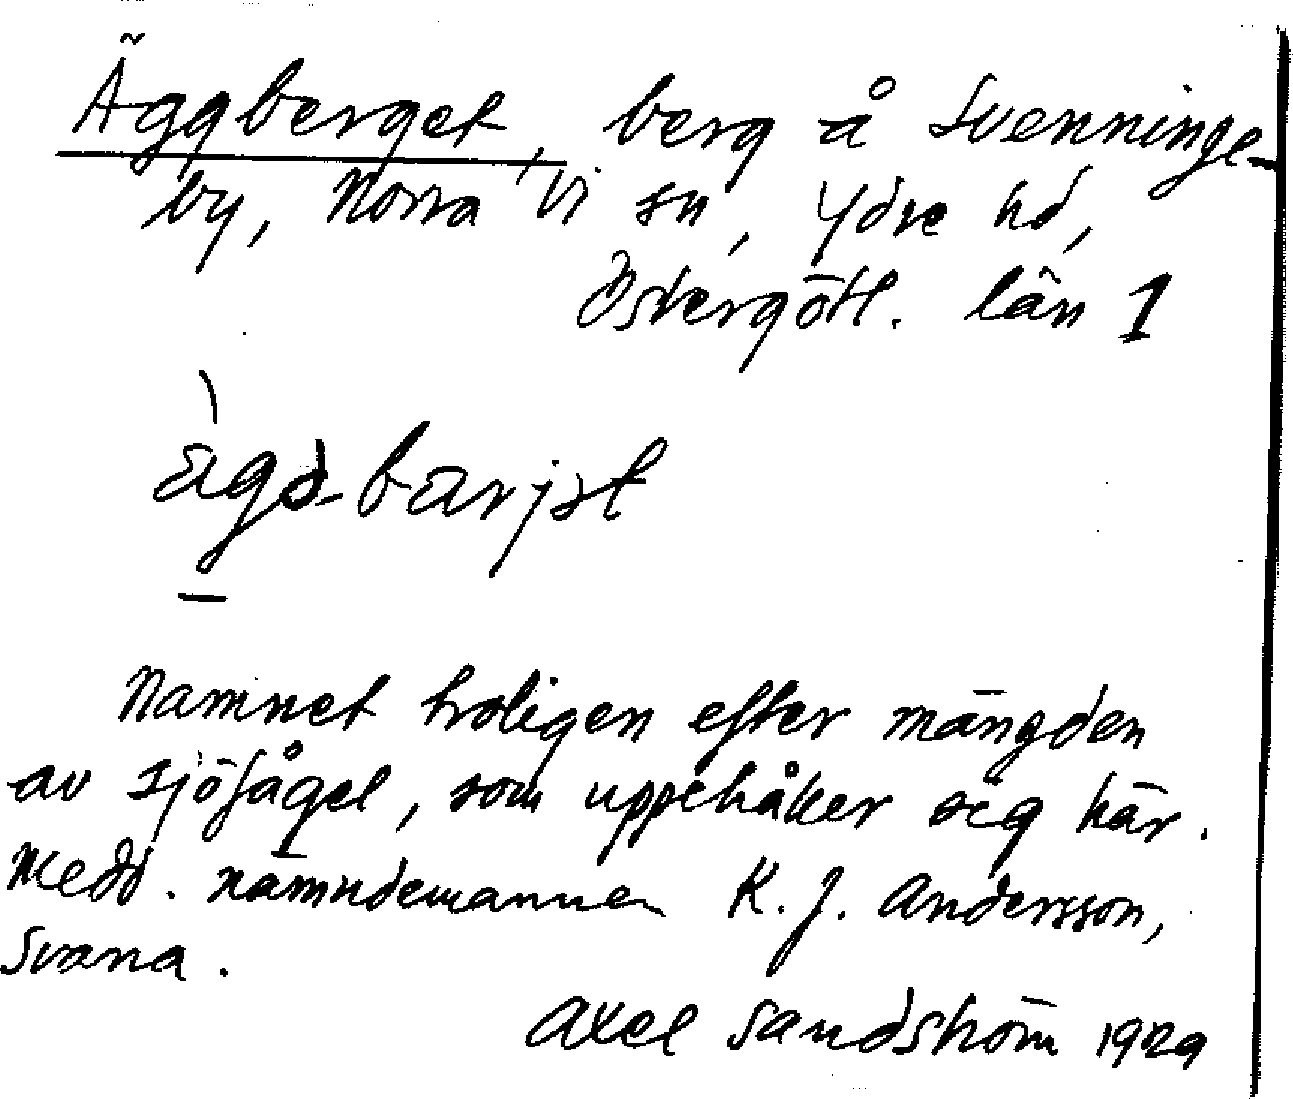 Äggberget, berg å Svenninge-
by, Norra Vi sn, Ydre hd,
Östergötl. län 1
Namnet troligen efter mängden
av sjöfågel, som uppehåller sig här.
Medd. nämndemannen K. J. Andersson,
Svana.
Axel Sandström 1929